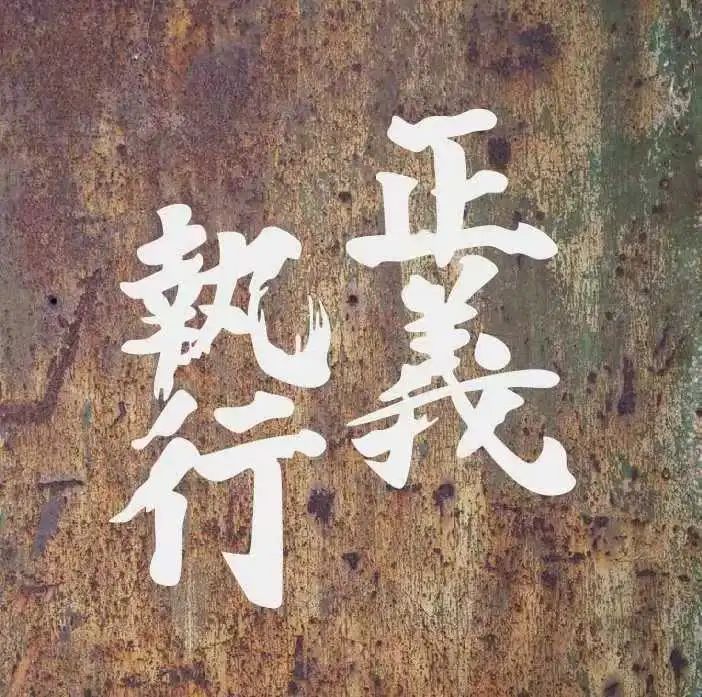 正義
執行